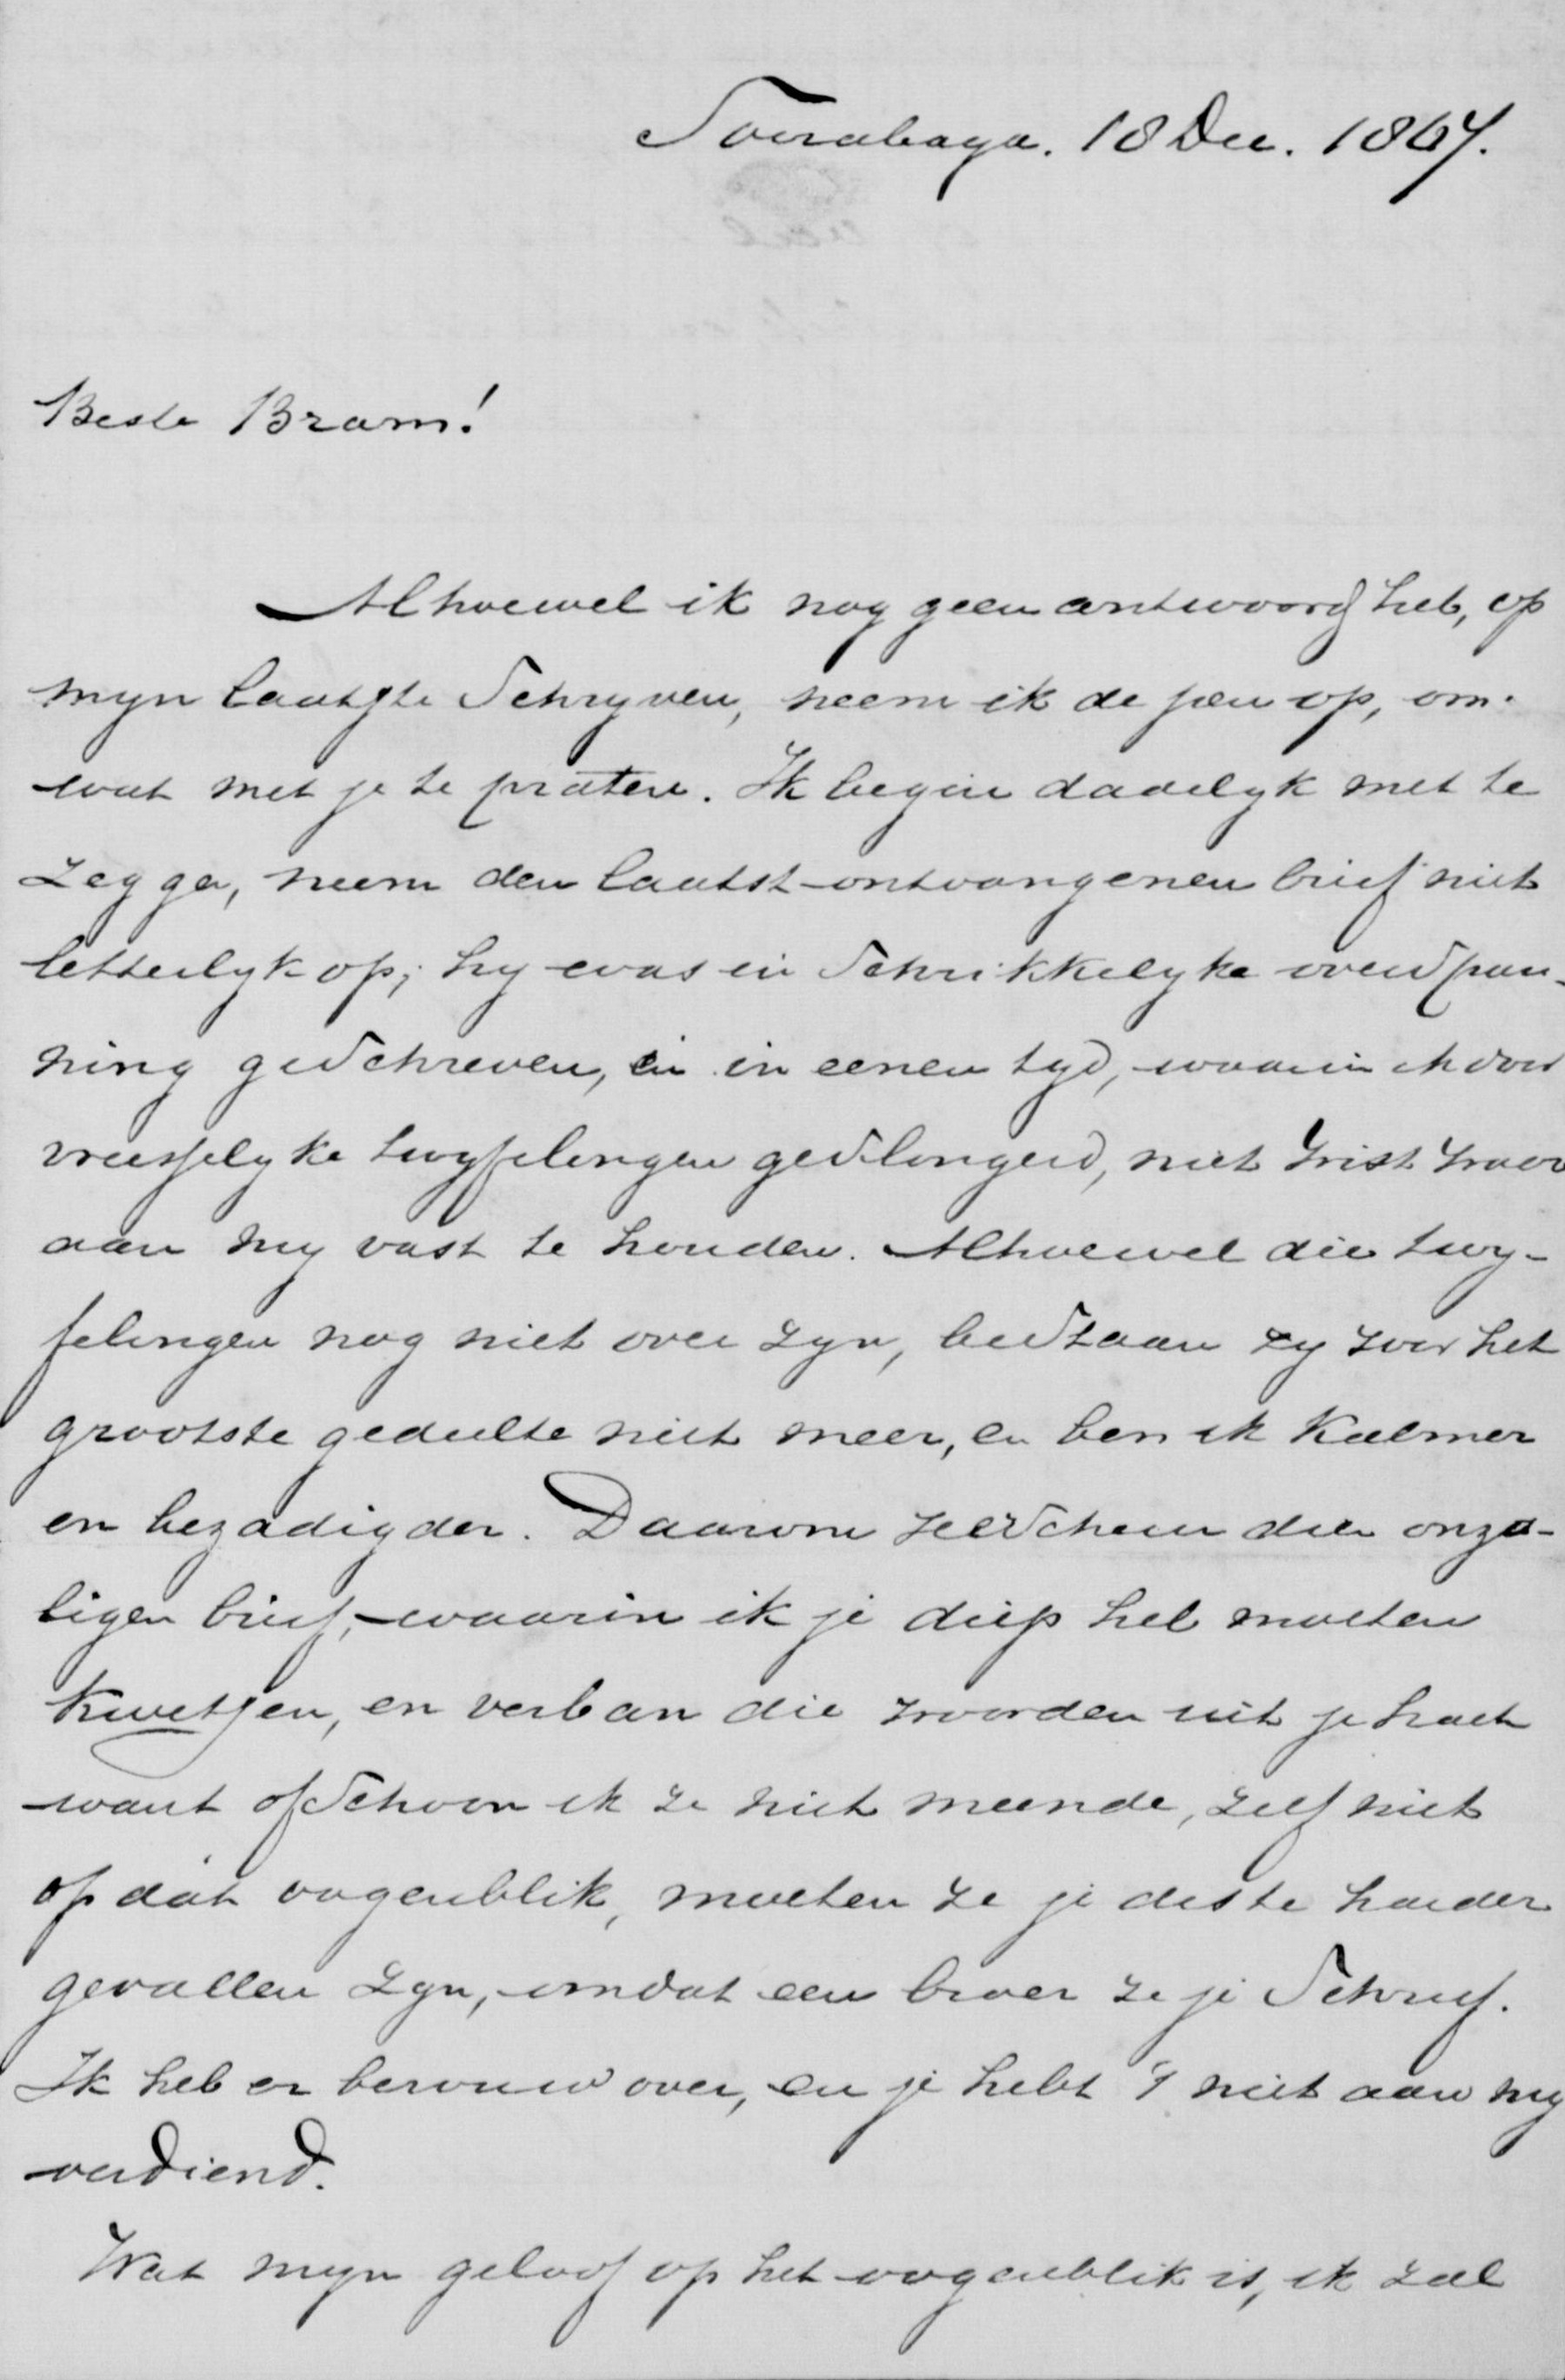 Soerabaya. 18 Dec. 1867.
Beste Bram!
Alhoewel ik nog geen antwoord heb, op
myn laatste schryven, neem ik de pen op, om
wat met je te praten. Ik begin dadelyk met te
zeggen, neem den laatst-ontvangenen brief niet
letterlyk op; hy was in schrikkelyke overspan-
ning geschreven, en in eenen tyd, waarin ik door
vreesselyke twyfelingen geslingerd, niet wist waar
aan my vast te houden. Alhoewel die twy-
felingen nog niet over zyn, bestaan zy voor het
grootste gedeelte niet meer, en ben ik kalmer
en bezadigder. Daarom verscheur dien onza-
ligen brief, waarin ik je diep heb moeten
kwetsen, en verban die woorden uit je hart
want ofschoon ik ze niet meende, zelf niet
op dàt oogenblik, moeten ze je deste harder
gevallen zyn, omdat een broer ze je schreef.
Ik heb er berouw over, en je hebt 't niet aan my
verdiend.
Wat myn geloof op het oogenblik is, ik zal